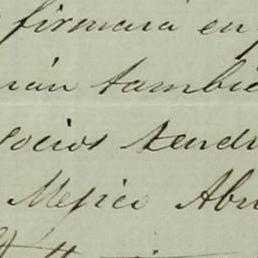 firmará en
rán tambié
socios tendr
Mejico Abr